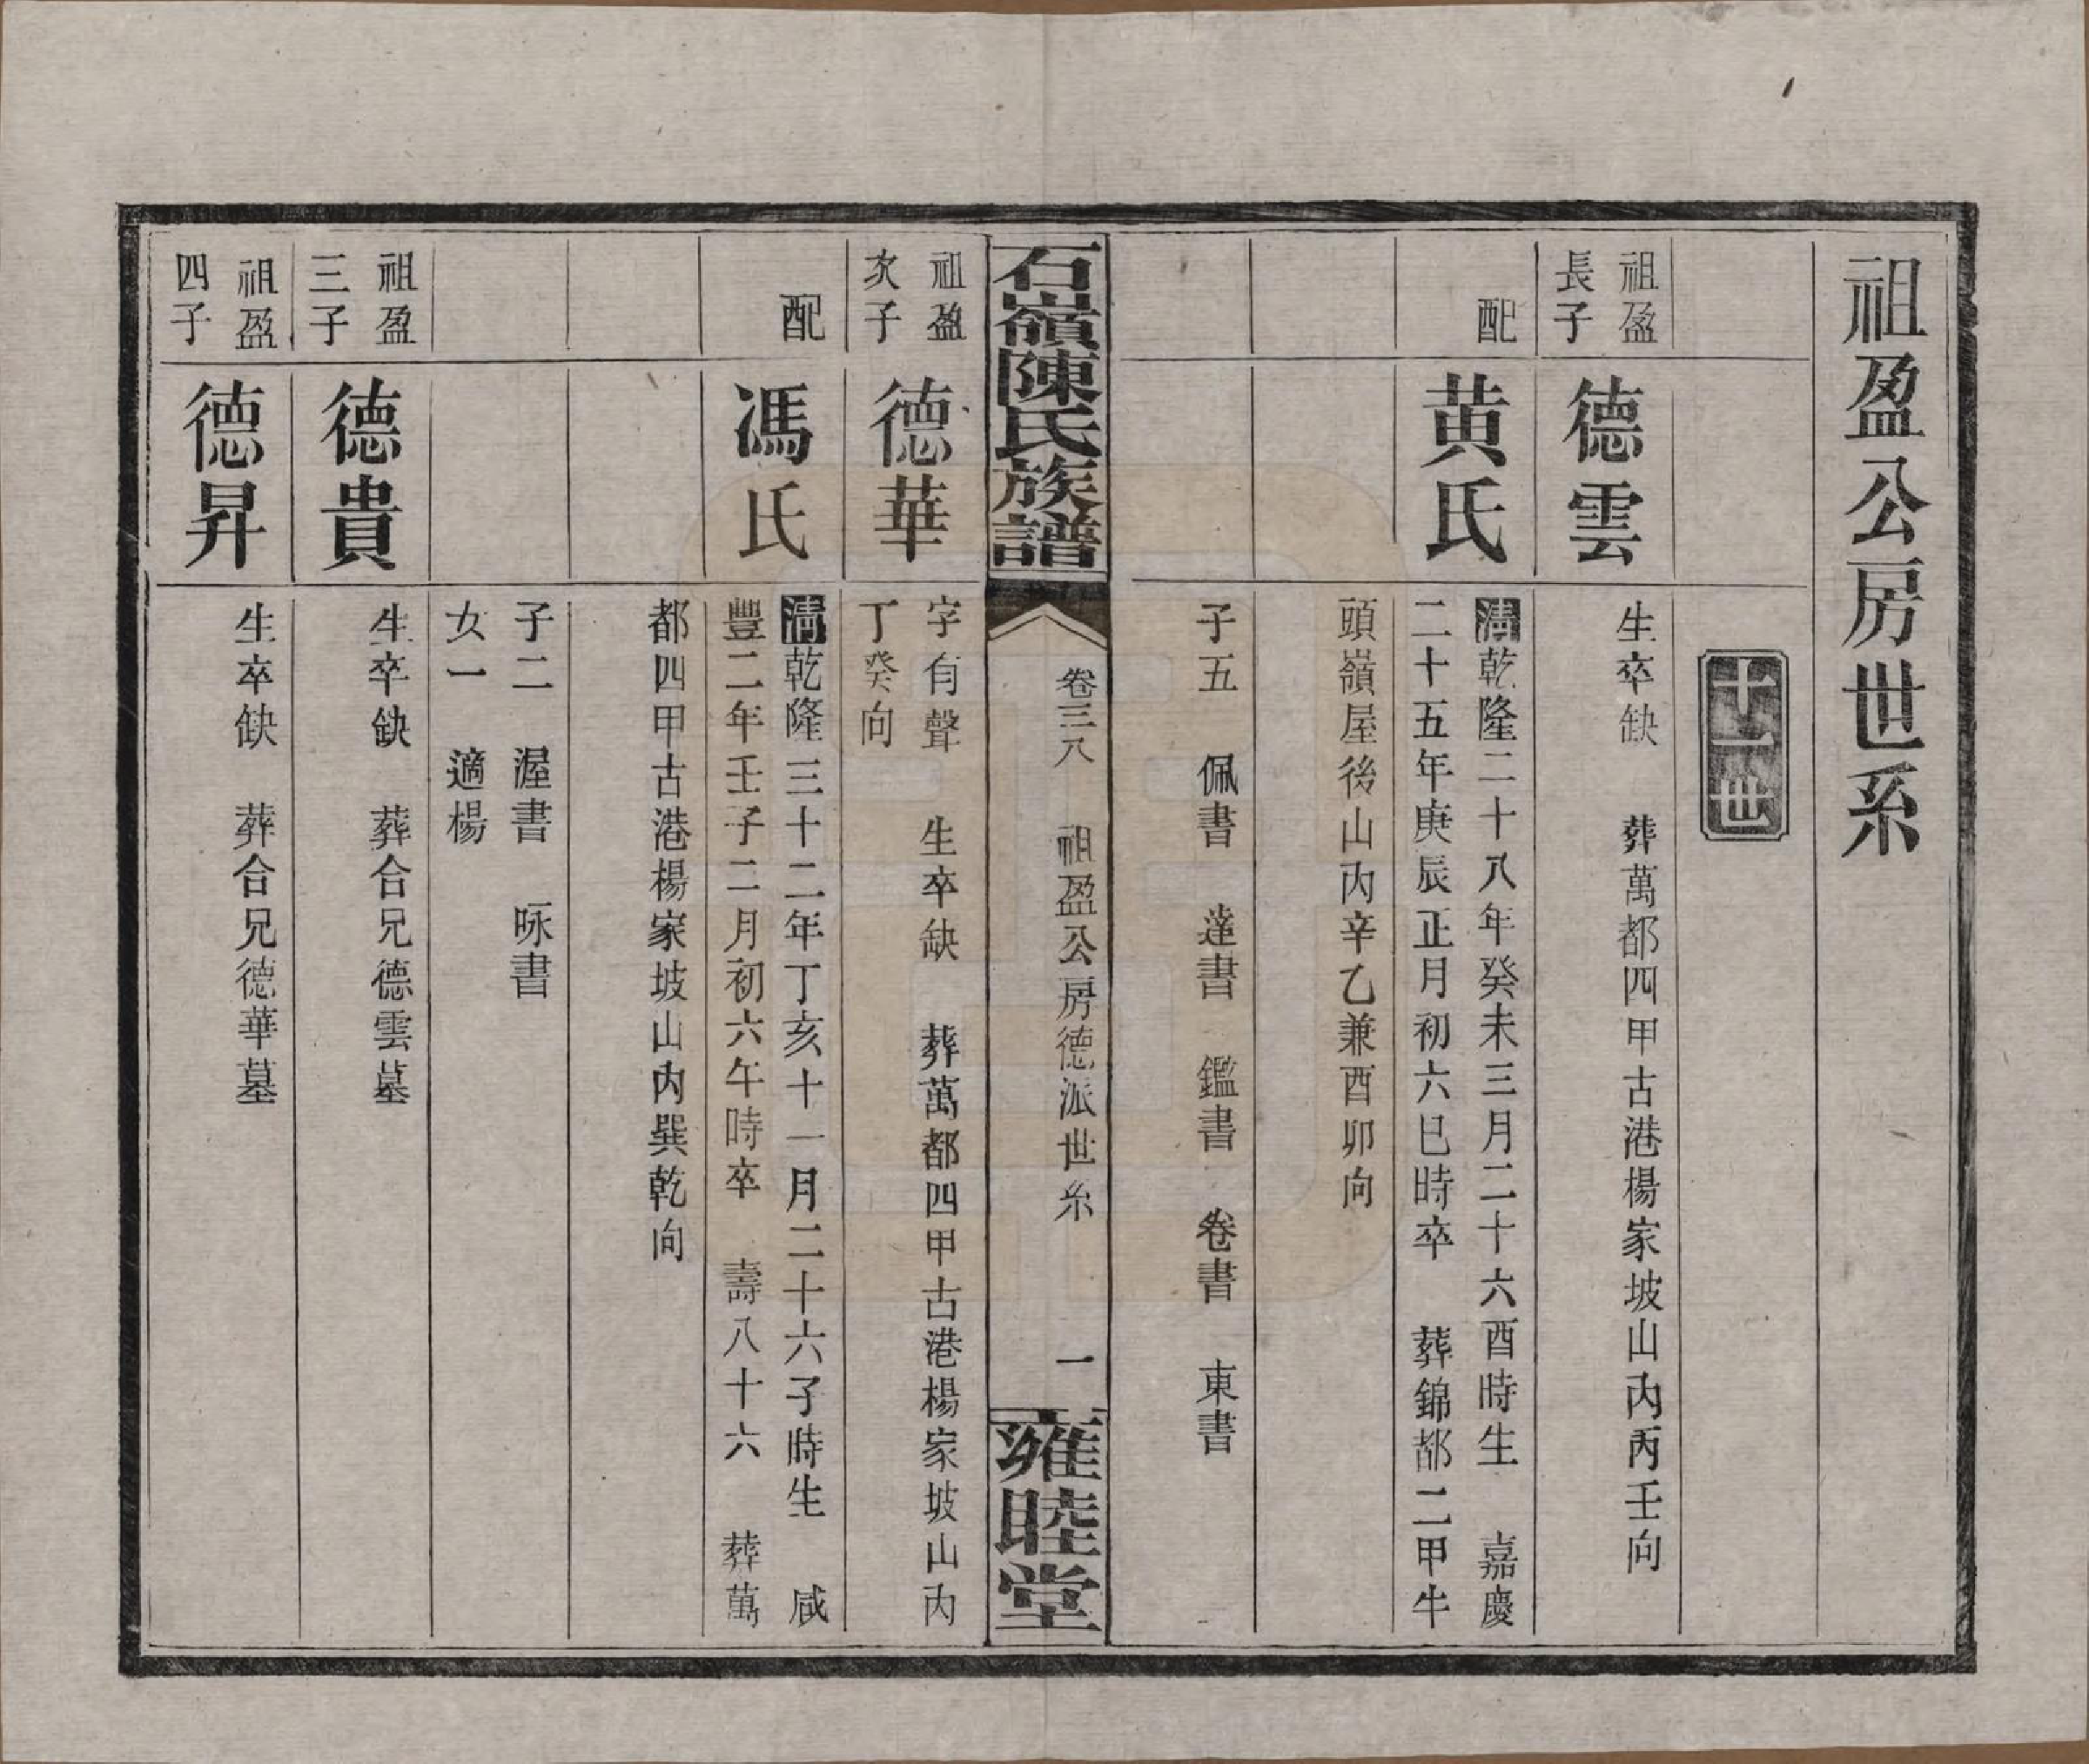 祖盈公房世系
十一世
祖盈
長子
德雲
生卒缺　葬萬都四甲古港楊家坡山內丙壬向
配
黄氏
清乾隆二十八年癸未三月二十六酉時生　嘉慶
二十五年庚辰正月初六巳時卒　葬錦都二甲牛
頭嶺屋後山內辛乙兼酉卯向
子五　佩書　達書　鑑書　卷書　東書
石嶺陳氏族譜
卷三八　祖盈公房德派世系　一
雍睦堂
祖盈
次子
德華
字有聲　生卒缺　葬萬都四甲古港楊家坡山內
丁癸向
配
馮氏
清乾隆三十二年丁亥十一月二十六子時生　咸
豐二年壬子二月初六午時卒　壽八十六　葬萬
都四甲古港楊家坡山內巽乾向
子二　渥書　咏書
女一　適楊
祖盈
三子
德貴
生卒缺　葬合兄德雲墓
祖盈
四子
德昇
生卒缺　葬合兄德華墓